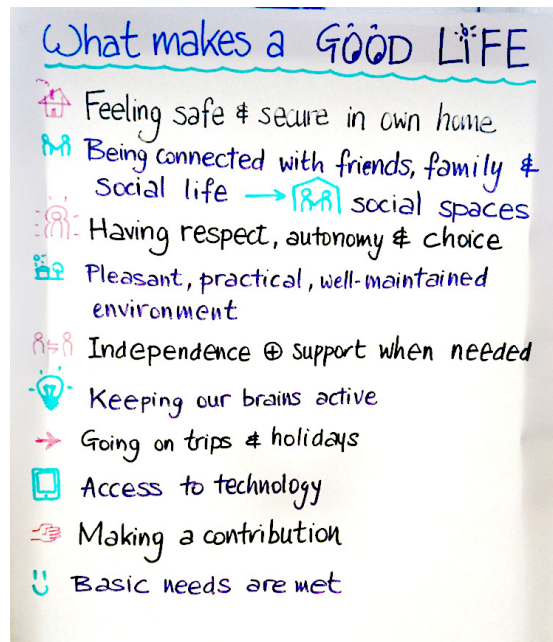 What makes a GOOD LIFE
Feeling safe & secure in own home
Being connected with friends, family &
social life → social spaces
Having respect, autonomy & choice
Pleasant, practical, well-maintained
environment
Independence ⊕ support when needed
Keeping our brains active
Going on trips & holidays
Access to technology
Making a contribution
Basic needs are met